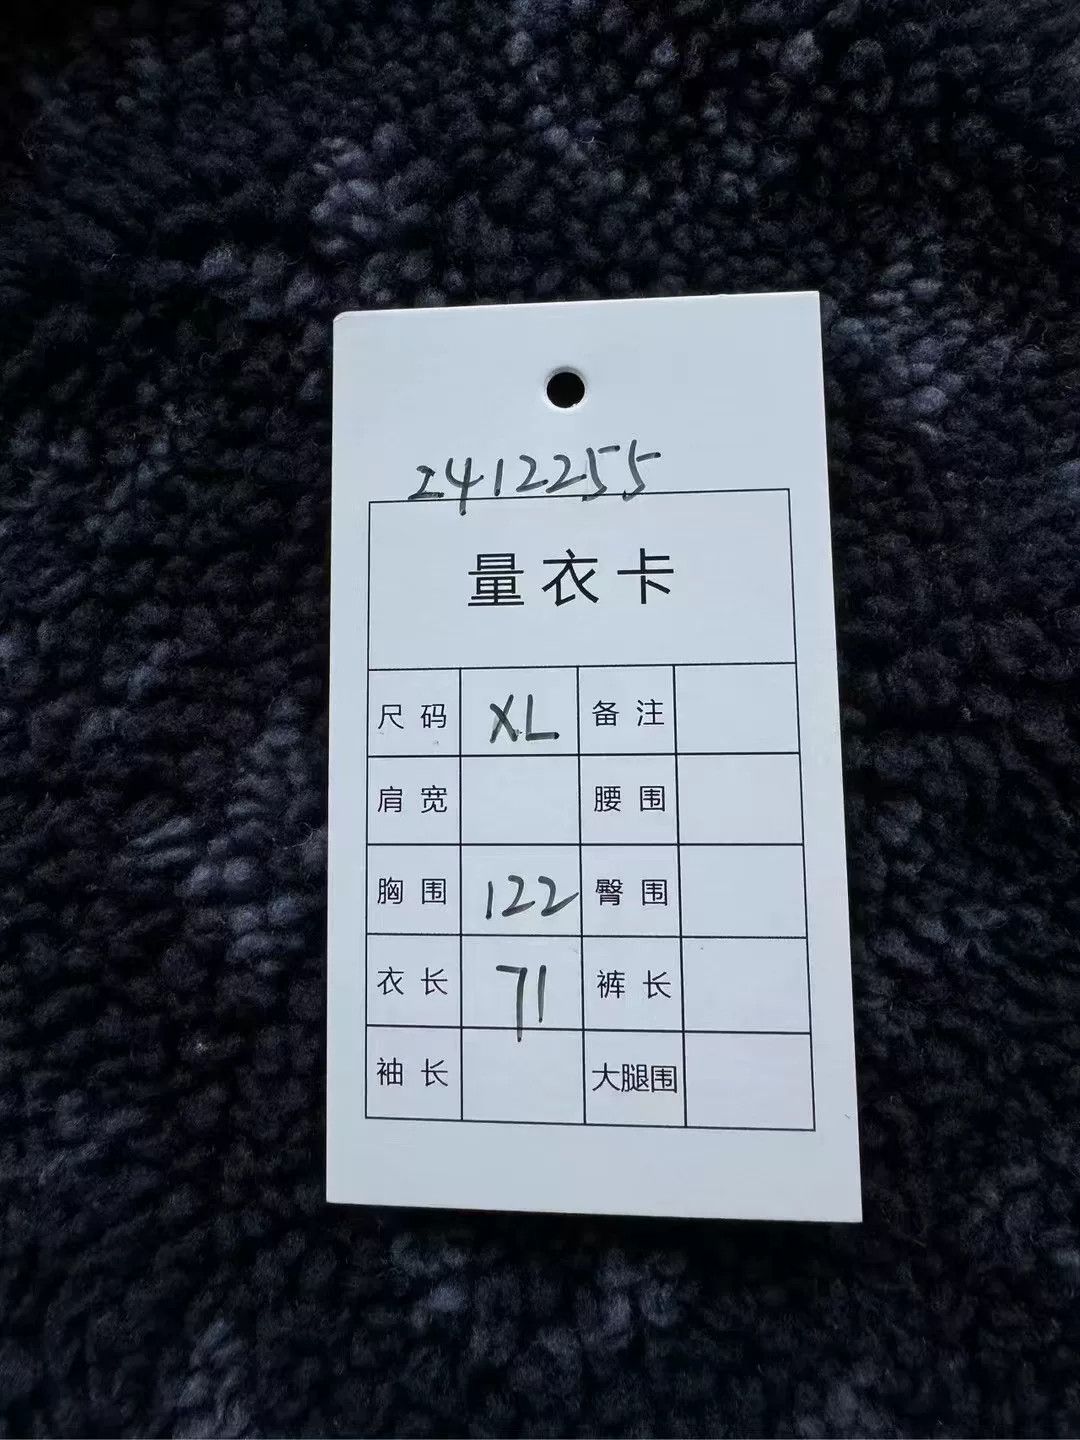 2412255
量衣卡
尺码 XL 备注
肩宽 腰围
胸围 122 臀围
衣长 71 裤长
袖长 大腿围